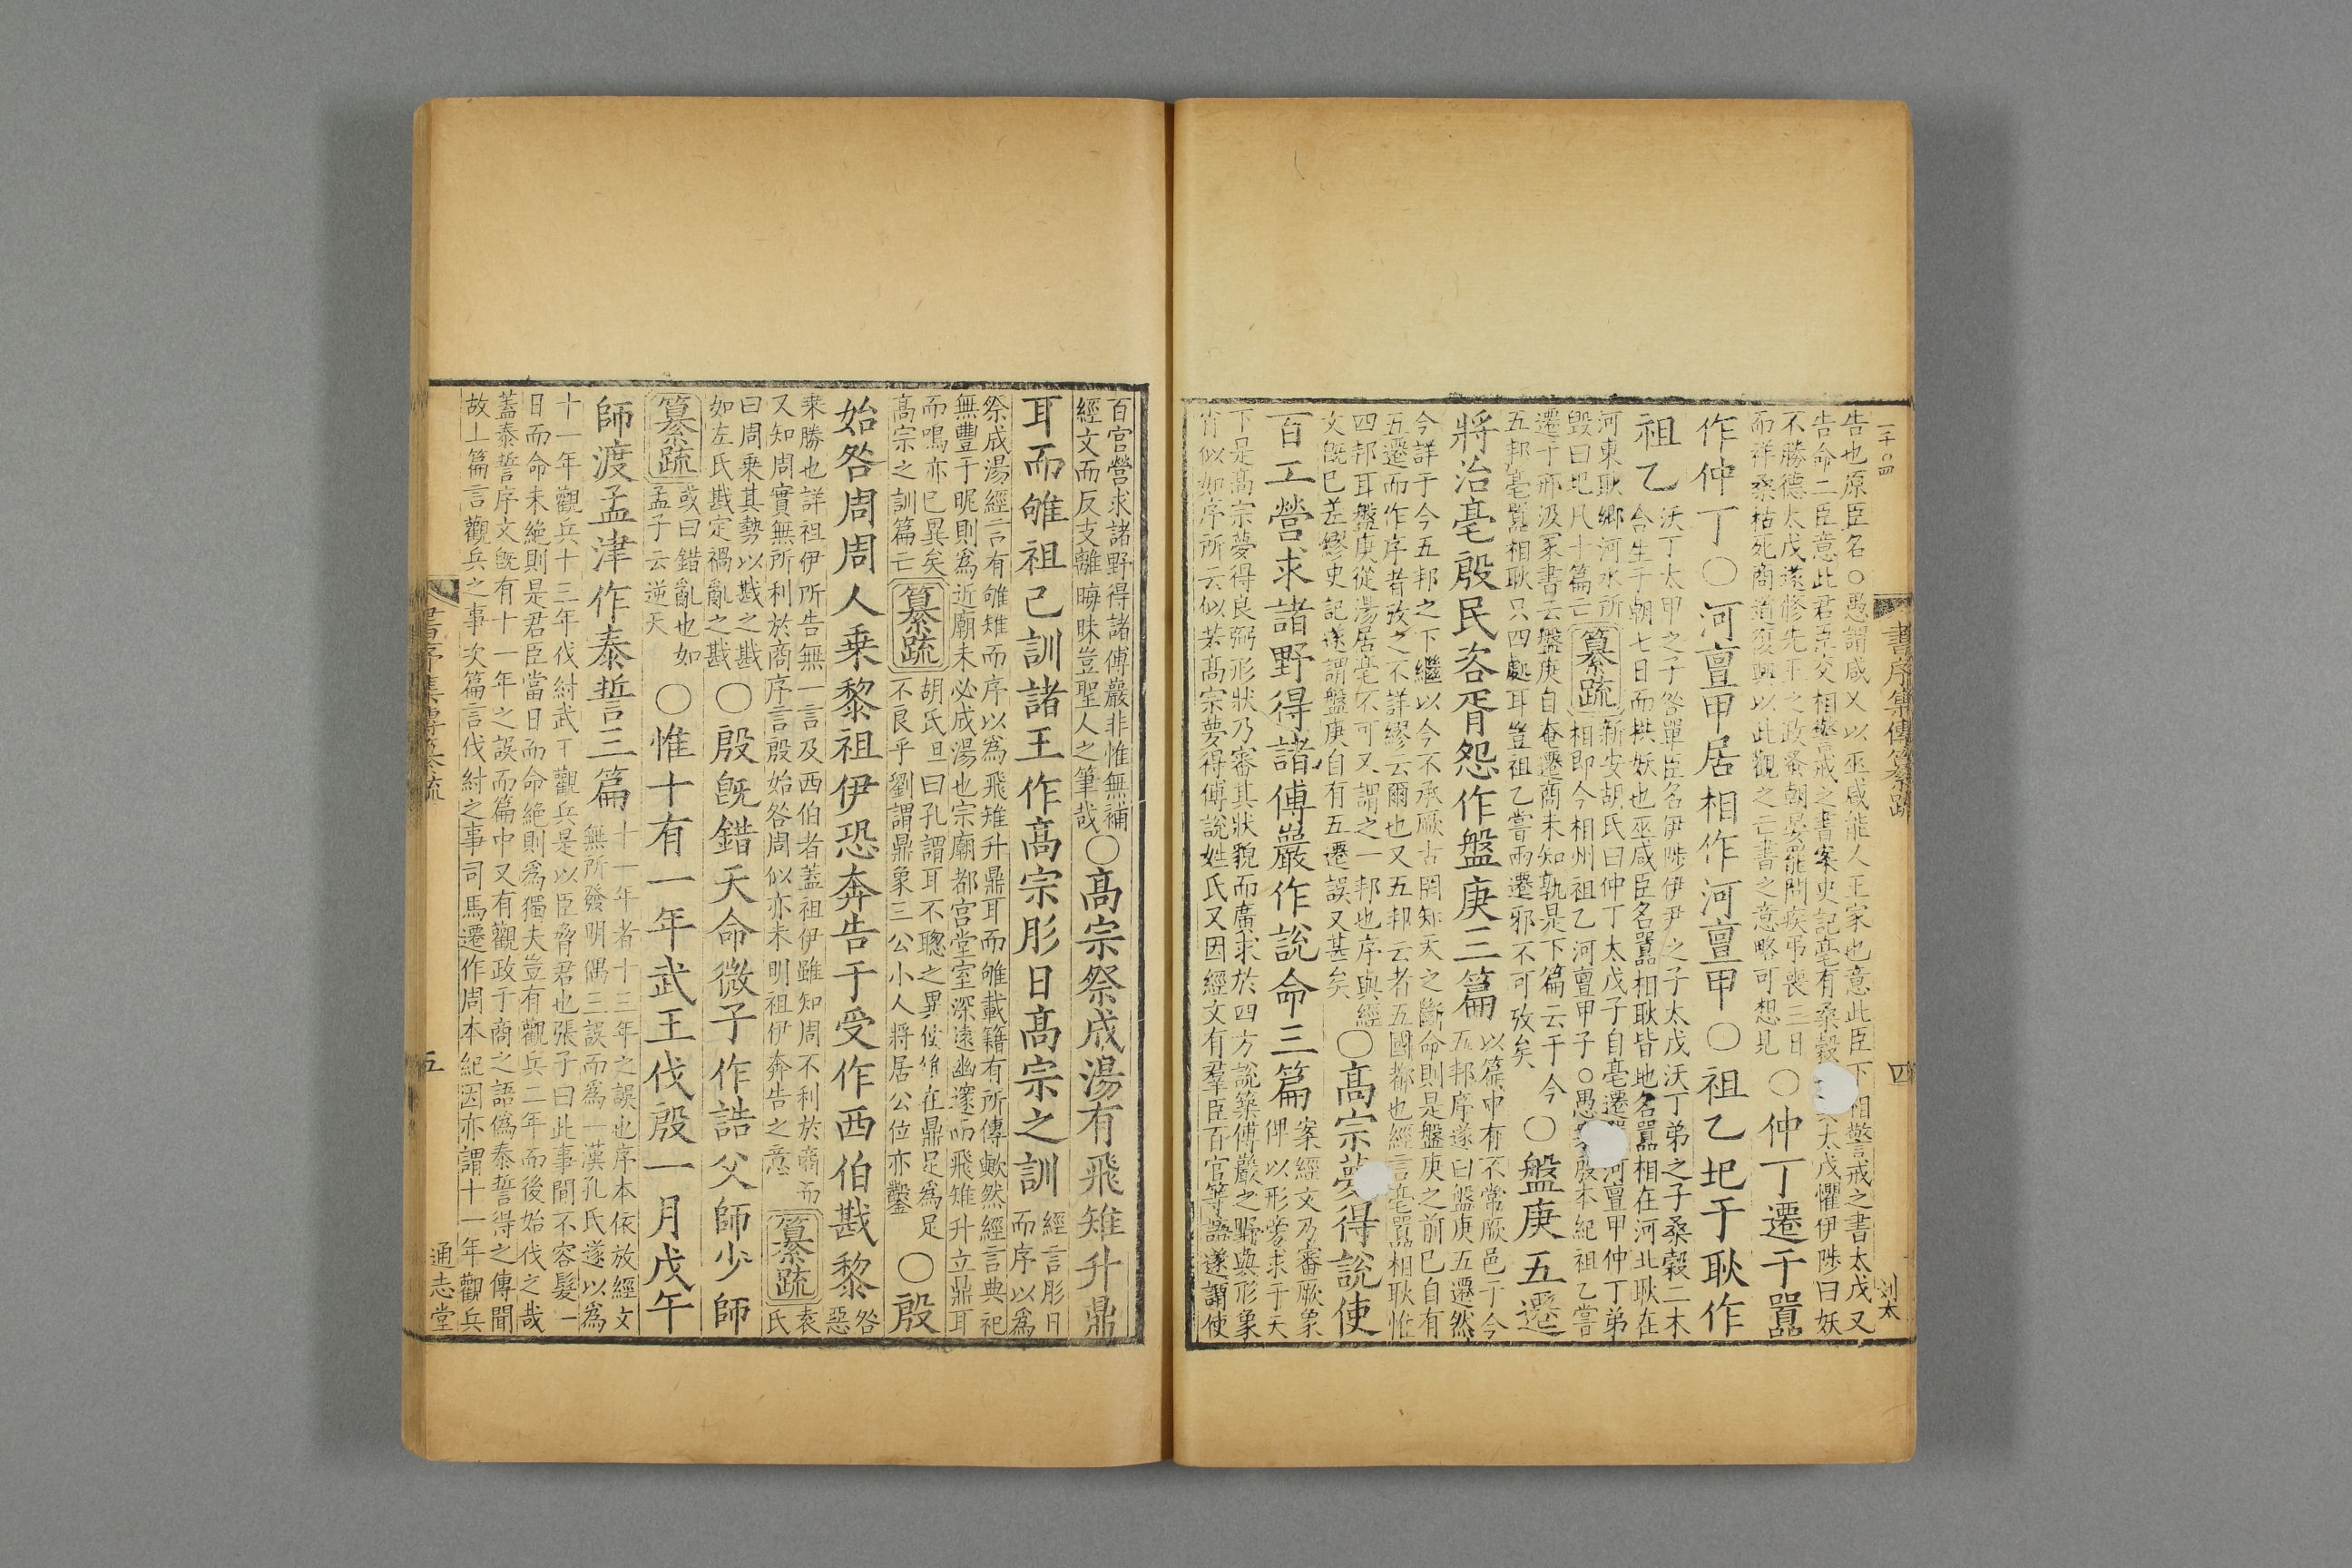 一千〇四
書序集傳纂疏
四
刘太
告也原臣名○愚謂咸乂以巫咸能人王家也意此臣下相警戒之書太戊又
告命二臣意此君臣交相警戒之書案史記亳有桑穀太戊懼伊陟曰妖
不勝德太戊遂修先王之政蚤朝晏罷問疾弔喪三日
而祥桑枯死商道復興以此觀之亡書之意略可想見
○仲丁遷于囂
作仲丁○河亶甲居相作河亶甲○祖乙圯于耿作
祖乙
沃丁太甲之子咎單臣名伊陟伊尹之子太戊沃丁弟之子桑穀二木
合生于朝七日而拱妖也巫咸臣名囂相耿皆地名囂相在河北耿在
河東耿鄉河水所
毁曰圯凡十篇亡
纂疏
新安胡氏曰仲丁太戊子自亳遷囂河亶甲仲丁弟
相即今相州祖乙河亶甲子○愚案殷本紀祖乙嘗
遷于邢汲冢書云盤庚自奄遷商未知孰是下篇云于今
五邦亳囂相耿只四處耳豈祖乙嘗兩遷邪不可攷矣
○盤庚五遷
將治亳殷民咨胥怨作盤庚三篇
以篇中有不常厥邑于今
五邦序遂曰盤庚五遷然
今詳于今五邦之下繼以今不承厥古罔知天之斷命則是盤庚之前已自有
五遷而作序者攷之不詳繆云爾也又五邦云者五國都也經言亳囂相耿惟
四邦耳盤庚從湯居亳不可又謂之一邦也序與經
文旣已差繆史記遂謂盤庚自有五遷誤又甚矣
○髙宗夢得說使
百工營求諸野得諸傅巖作說命三篇
案經文乃審厥象
俾以形旁求于天
下是髙宗夢得良弼形狀乃審其狀貌而廣求於四方說築傅巖之野與形象
肖似如序所云似若髙宗夢得傅說姓氏又因經文有羣臣百官等語遂謂使
百官營求諸野得諸傅巖非惟無補
經文而反支離晦昧豈聖人之筆哉
○髙宗祭成湯有飛雉升鼎
耳而雊祖己訓諸王作髙宗肜日髙宗之訓
經言肜日
而序以爲
祭成湯經言有雊雉而序以為飛雉升鼎耳而雊載籍有所傳歟然經言典祀
無豐于昵則爲近廟未必成湯也宗廟都宫堂室深遠幽邃而飛雉升立鼎耳
而鳴亦已異矣
髙宗之訓篇亡
纂疏
胡氏旦曰孔謂耳不聰之異使雉在鼎足爲足
不良乎劉謂鼎象三公小人將居公位亦鑿
○殷
始咎周周人乗黎祖伊恐奔告于受作西伯戡黎
咎
惡
乗勝也詳祖伊所告無一言及西伯者蓋祖伊雖知周不利於商而
又知周實無所利於商序言殷始咎周似亦未明祖伊奔告之意
纂疏
袁
氏
曰周乗其勢以戡之戡
如左氏戡定禍亂之戡
○殷旣錯天命微子作誥父師少師
纂疏
或曰錯亂也如
孟子云逆天
○惟十有一年武王伐殷一月戊午
師渡孟津作泰誓三篇
十一年者十三年之誤也序本依放經文
無所發明偶三誤而為一漢孔氏遂以爲
十一年觀兵十三年伐紂武王觀兵是以臣脅君也張子曰此事間不容髮一
日而命未絶則是君臣當日而命絶則爲獨夫豈有觀兵二年而後始伐之哉
蓋泰誓序文旣有十一年之誤而篇中又有觀政于商之語僞泰誓得之傳聞
故上篇言觀兵之事次篇言伐紂之事司馬遷作周本紀因亦謂十一年觀兵
書序集傳纂疏
五
通志堂